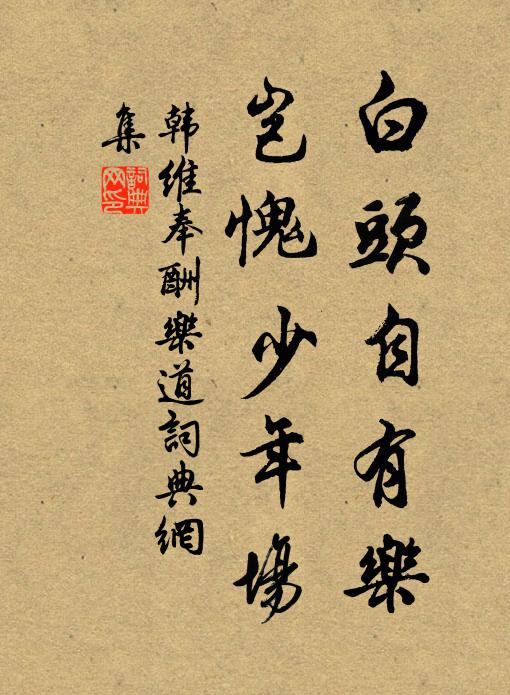 白頭自有樂
豈愧少年場
韩維奉酬樂道詞典網
集
詞典
网印